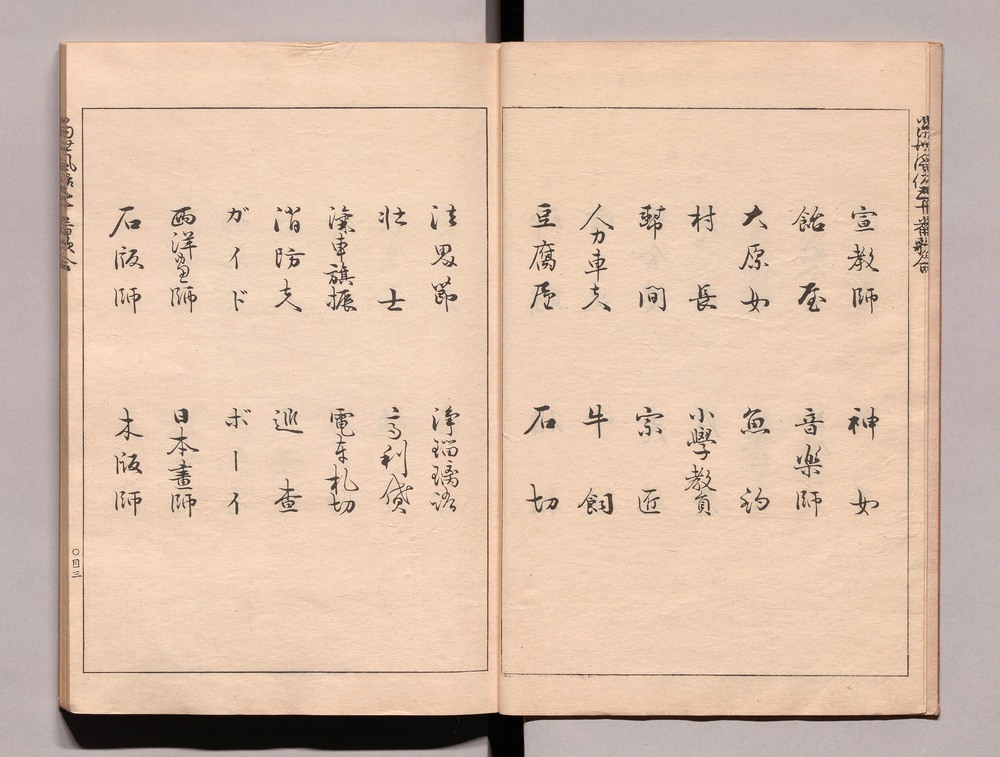 當世風俗五十番歌合
宣教師 神女
飴屋 音楽師
大原女 魚釣
村長 小學教員
幇間 宗匠
人力車夫 牛飼
豆腐屋 石切
法界節 浄瑠璃語
壮士 高利貸
滊車旗振 電車札切
消防夫 巡査
ガイド ボーイ
西洋画師 日本畫師
石版師 木版師
〇目三